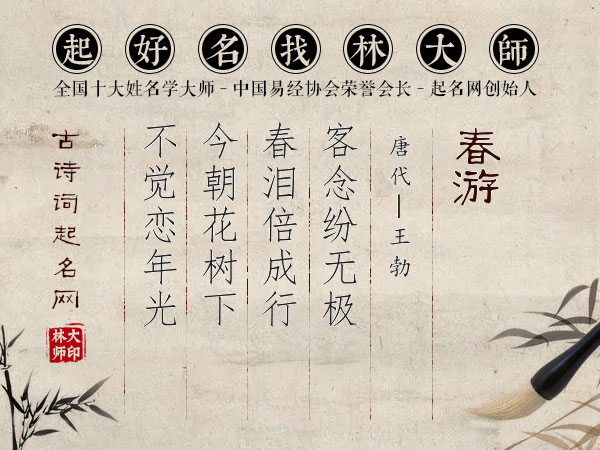 起好名找林大師
全国十大姓名学大师-中国易经协会荣誉会长-起名网创始人
春游
唐代—王勃
客念纷无极
春泪倍成行
今朝花树下
不觉恋年光
古诗词起名网
大师
林印